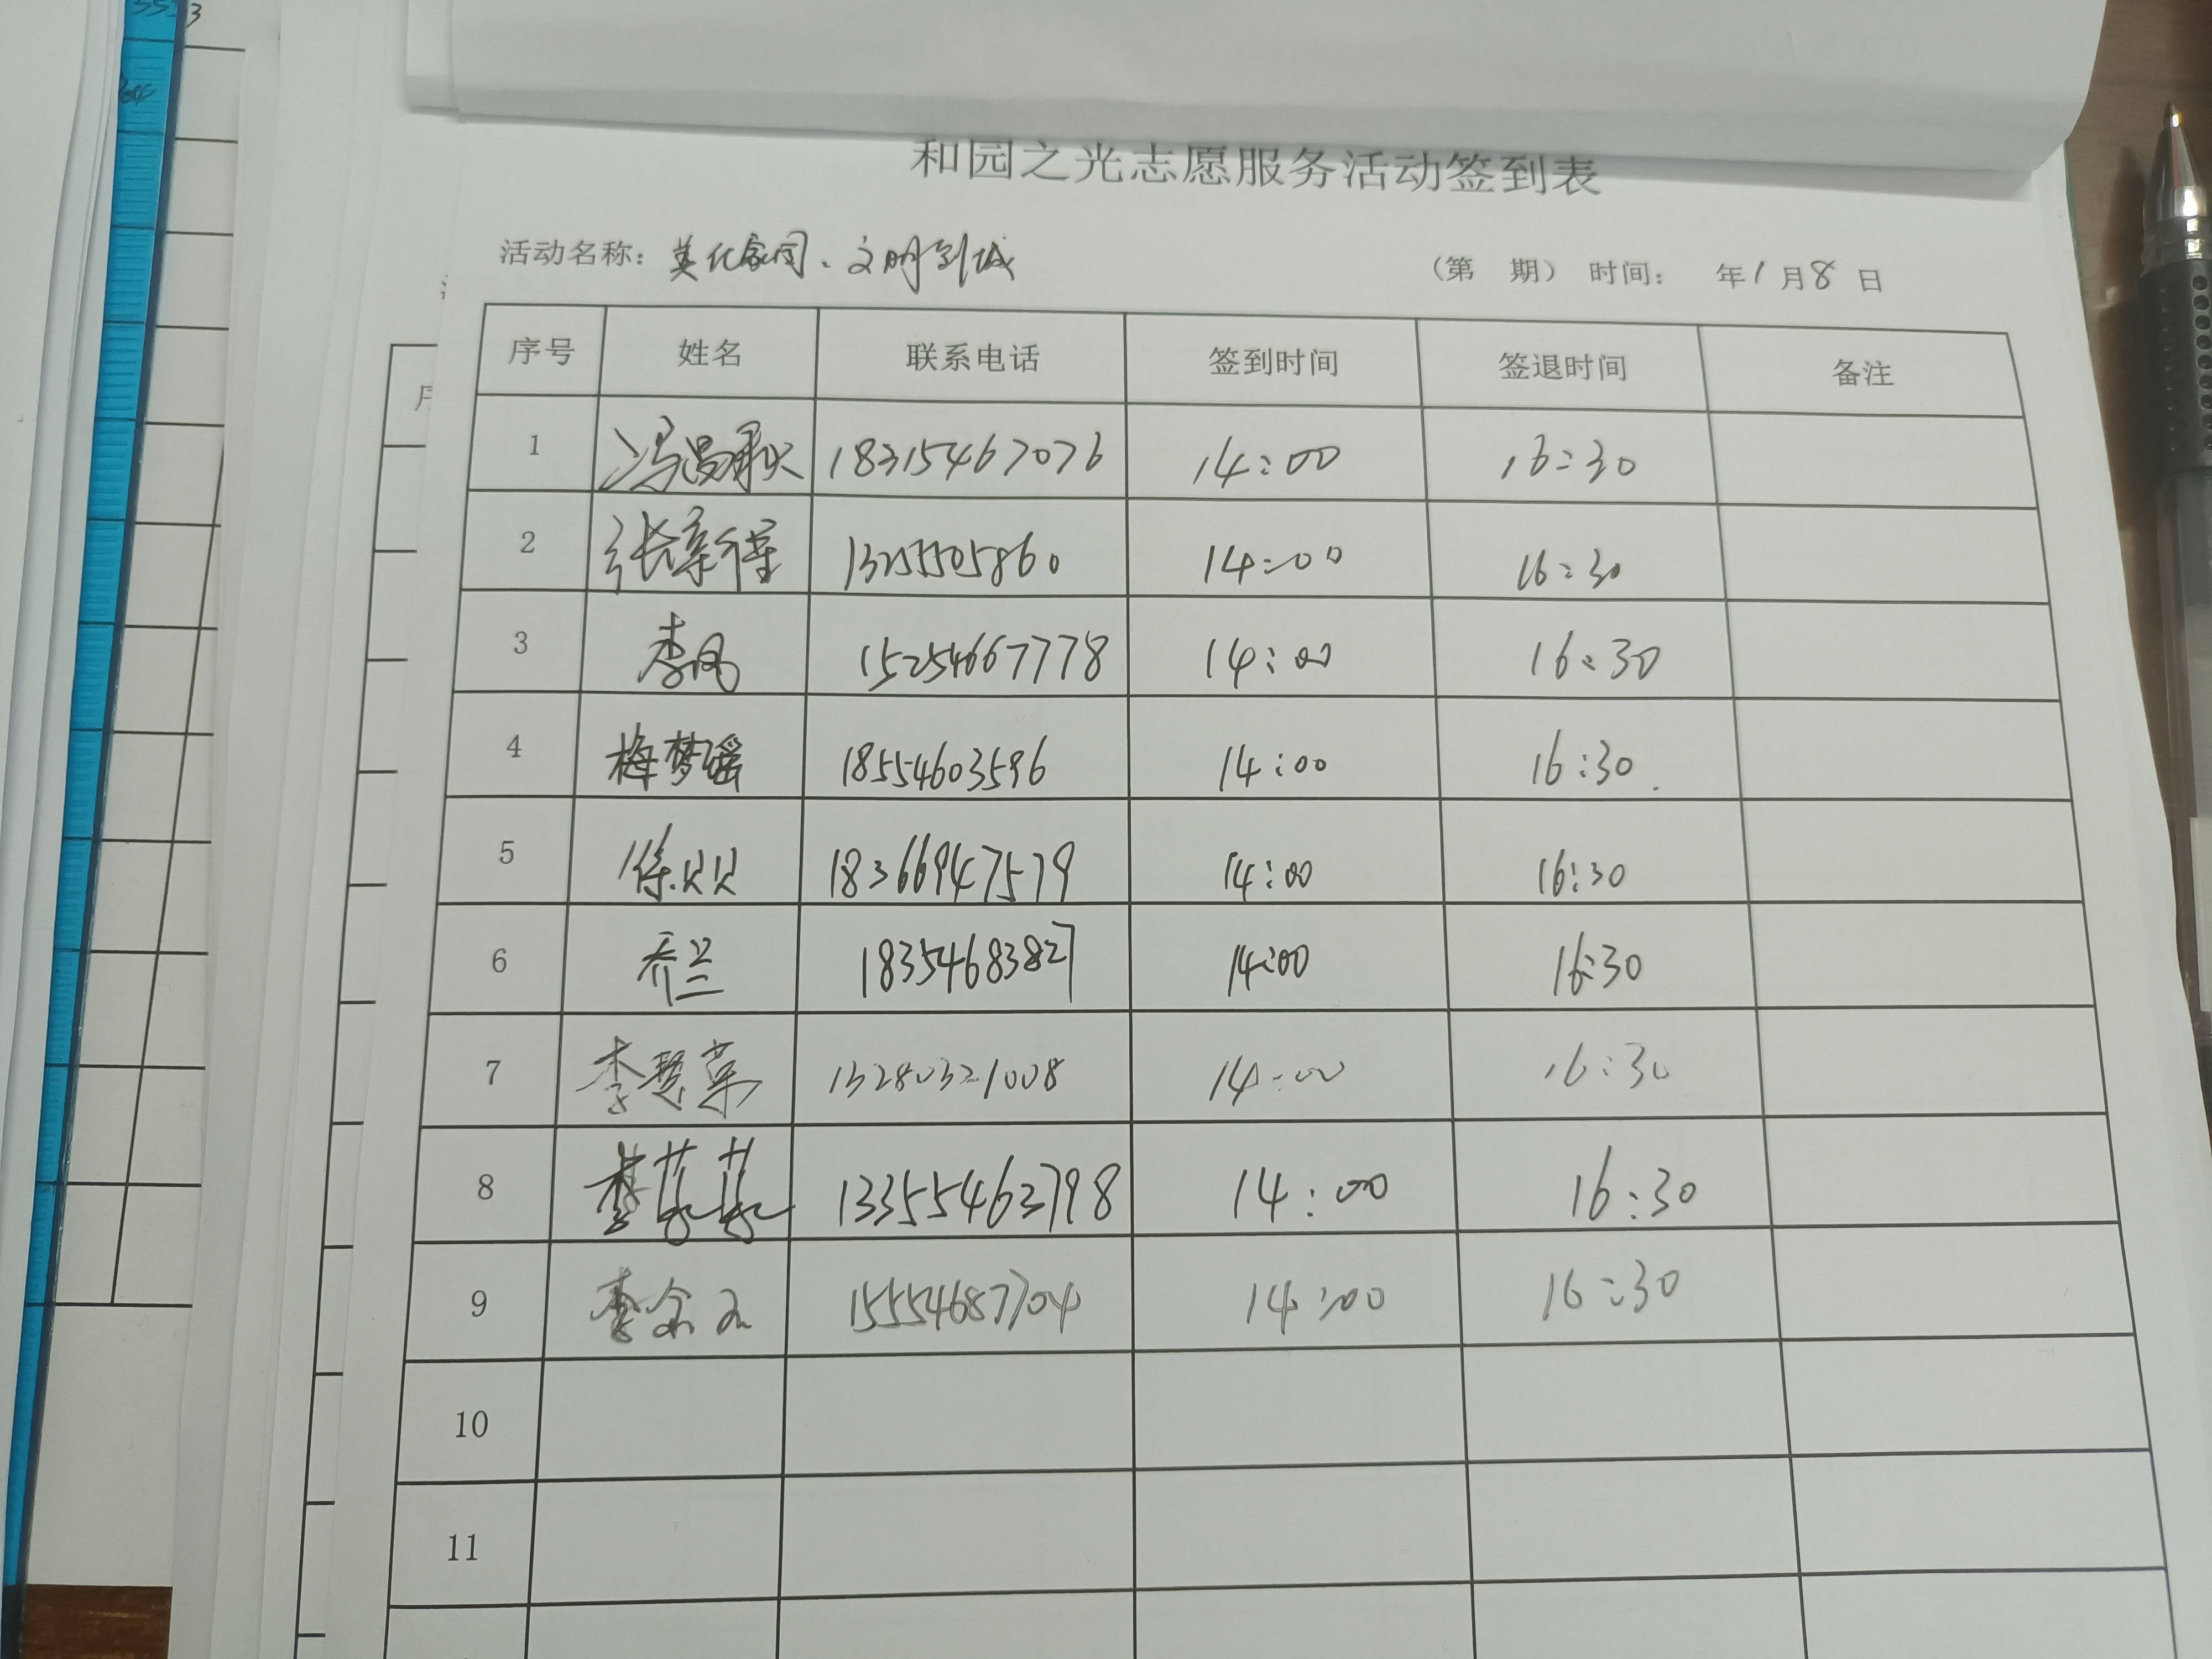 和园之光志愿服务活动签到表
活动名称：美化家园、文明创城 （第 期） 时间： 年1月8日
序号 姓名 联系电话 签到时间 签退时间 备注
1 18315467076 14:00 16:30
2 14:00 16:30
3 李凤 15254667778 14:00 16:30
4 梅梦瑶 18554603596 14:00 16:30
5 徐贝贝 18366947579 14:00 16:30
6 乔兰 18354683827 14:00 16:30
7 李慧菜 13280321008 14:00 16:30
8 13355463798 14:00 16:30
9 15554687704 14:00 16:30
10
11